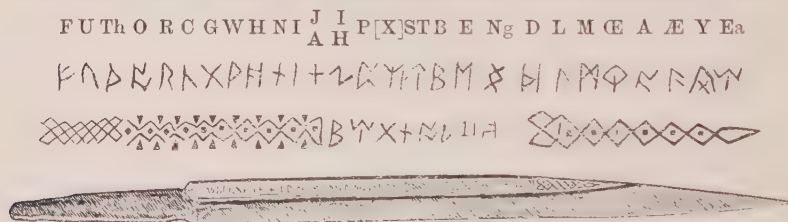 F U Th O R C G W H N I J A I H P [X] S T B E Ng D L M Œ A Æ Y Ea
ᚠᚢᚦᚩᚱᚳᚷᚹᚻᚾᛁᛡᛇᛈᛉᛋᛏᛒᛖᛝᛞᛚᛗᛟᚪᚫᚣᛠ
ᛒᛠᚷᚾᚩᚦ